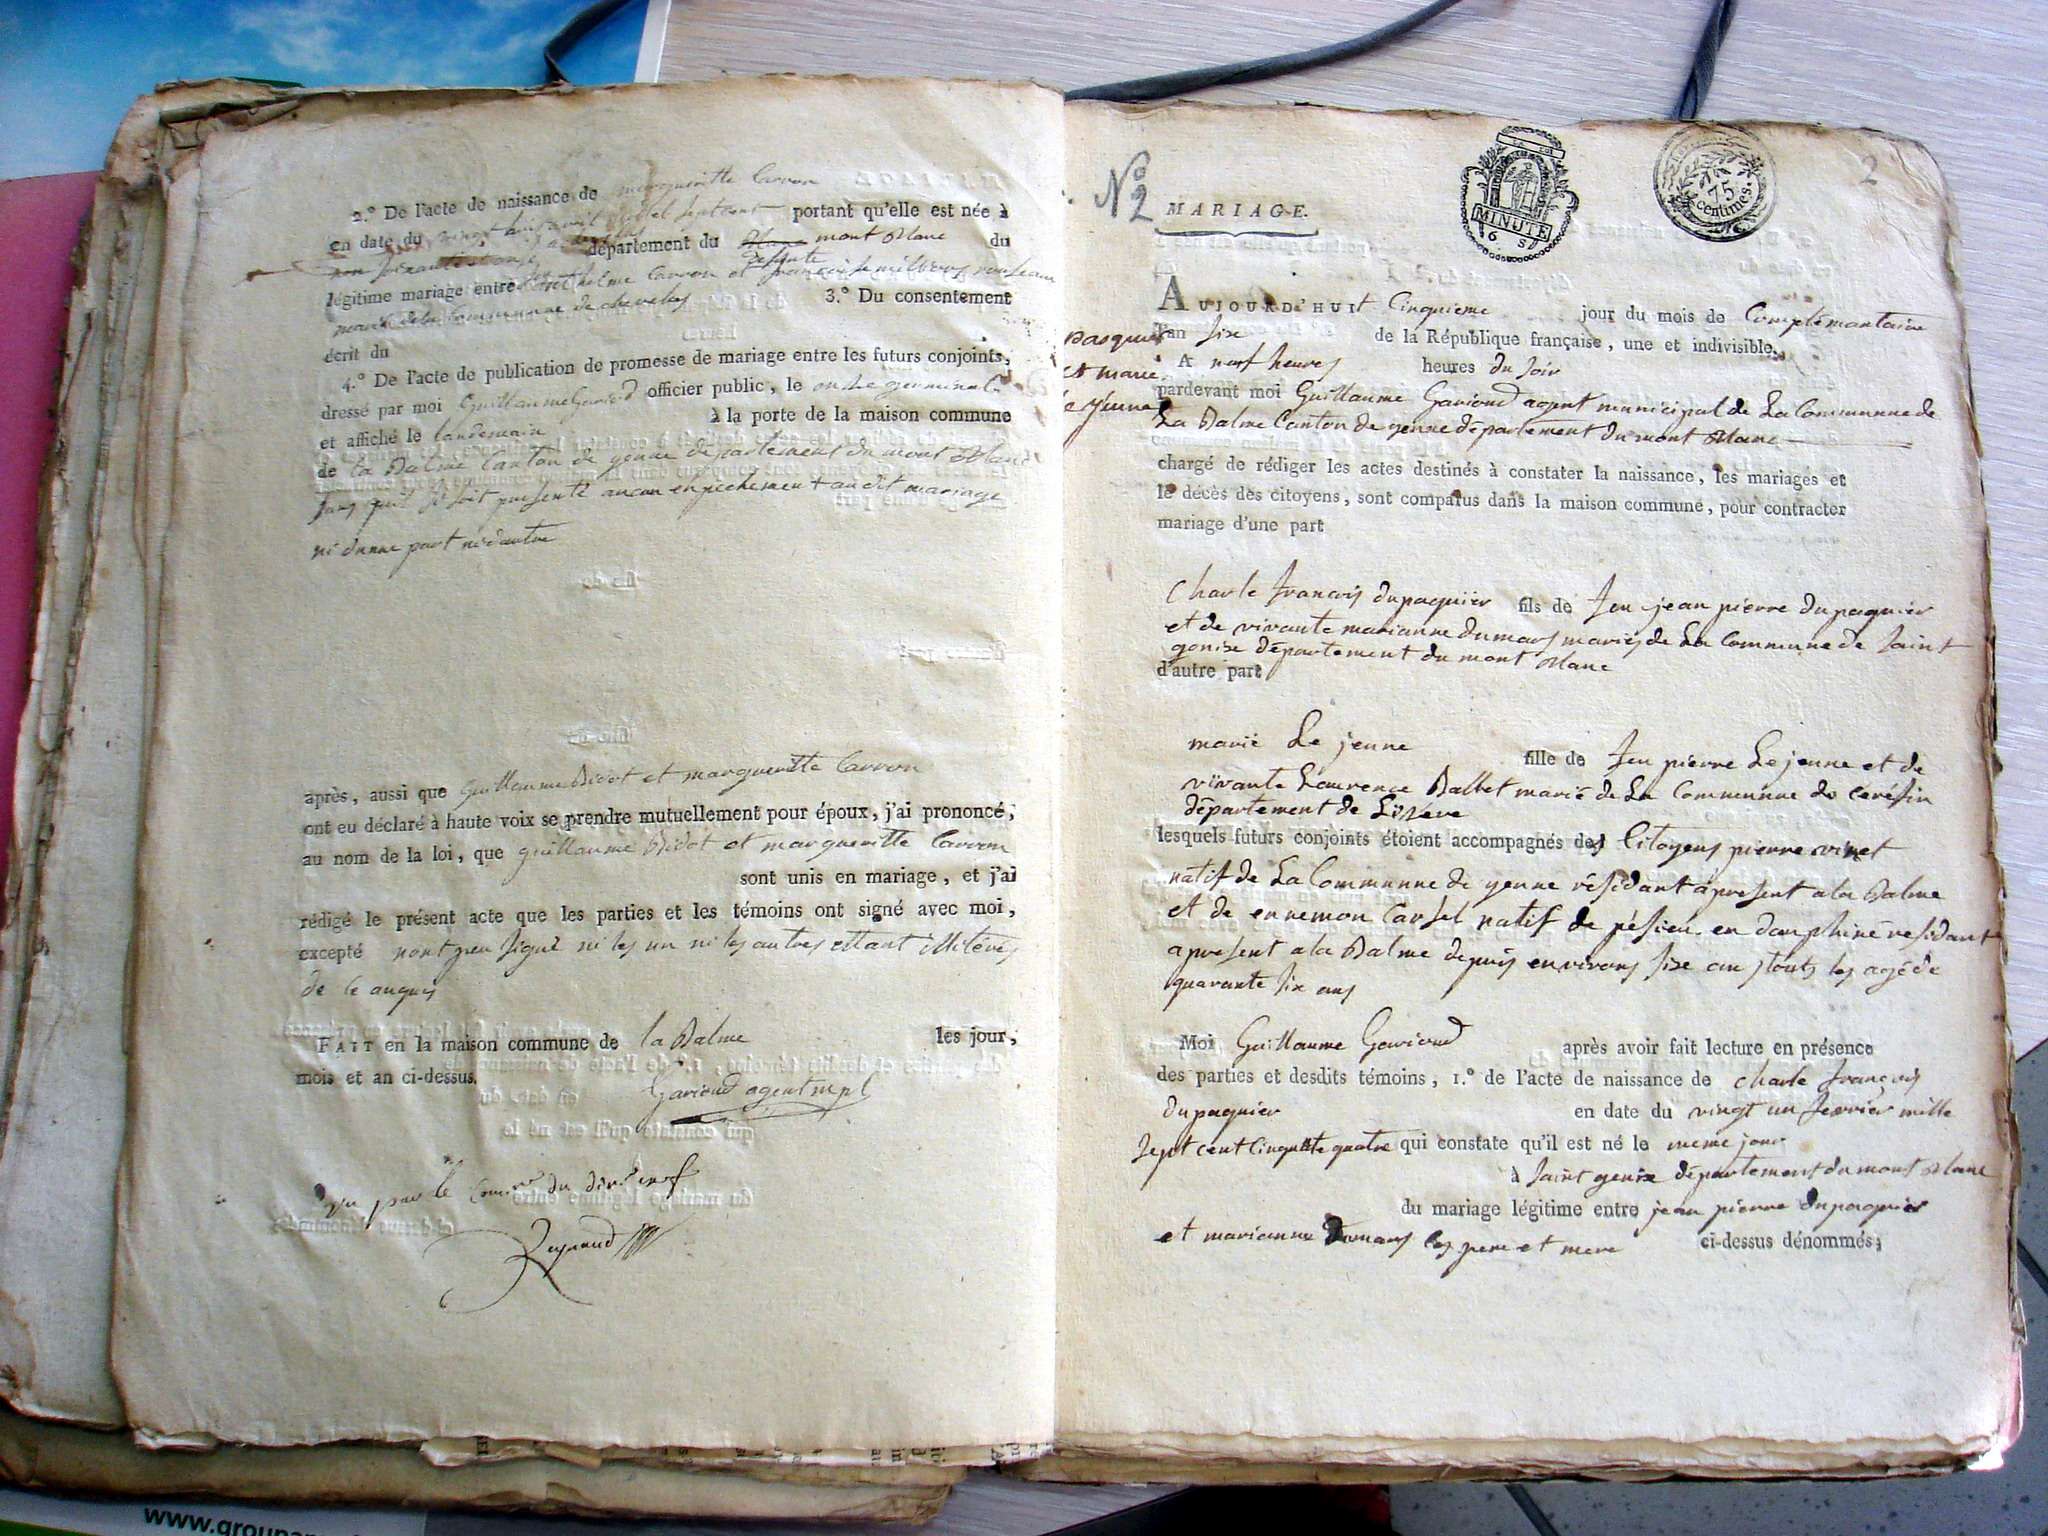 2.º De l'acte de naissance de margueritte Carron
en date du vingt huit avril mille sept cent portant qu'elle est née à
département du mont Blanc du
légitime mariage entre Carron et
mariés de la Commune de 3.º Du consentement
écrit du
4.º De l'acte de publication de promesse de mariage entre les futurs conjoints,
dressé par moi Guillaume Gavioud officier public, le onze germinal
et affiché le landemain à la porte de la maison commune
de la Balme Canton de yenne département du mont Blanc
sans quil se soit presenté aucun enpechement audit mariage
ni dunne part nidautre
après, aussi que Guillaume Bidot et margueritte Carron
ont eu déclaré à haute voix se prendre mutuellement pour époux, j'ai prononcé,
au nom de la loi, que guillaume Bidot et marguerite Carron
sont unis en mariage, et j'ai
rédigé le présent acte que les parties et les témoins ont signé avec moi,
excepté nont peu signé ni les un ni les autres ettant illiterés
de ce anquis
FAIT en la maison commune de la Balme les jour,
mois et an ci-dessus.
Gavioud agent mpl
Vu par le
Reynaud
Nº 2
MARIAGE.
LA LOI
MINUTE
6 S
75
centimes.
2
AUJOURD'HUI Cinquieme jour du mois de Complémantaire
l'an six de la République française, une et indivisible.
A neuf heures heures du soir
pardevant moi Guillaume Gavioud agent municipal de La Commune de
La Balme Canton de yenne département du mont Blanc
chargé de rédiger les actes destinés à constater la naissance, les mariages et
le décès des citoyens, sont comparus dans la maison commune, pour contracter
mariage d'une part
pasquier
et marie
le jeune
Charle francois dupaquier fils de feu jean pierre dupaquier
et de vivante marianne dumars mariés de La Commune de saint
genixe département du mont Blanc
d'autre part
marie Le jeune fille de feu pierre Lejeune et de
vivante Laurence Ballet marié de La Commune de cerésin
département de Lisére
lesquels futurs conjoints étoient accompagnés des Citoyens pierre vinet
natif de La Commune de yenne résidant apresent a la Balme
et de ennemon Carsel natif de pésieu en dauphiné residant
apresent a la Balme depuis environs sixe an touts les agé de
quarante six ans
Moi Guillaume Gavioud après avoir fait lecture en présence
des parties et desdits témoins, 1.º de l'acte de naissance de Charle françois
dupaquier en date du vingt un fevrier mille
sept cent Cinquante quatre qui constate qu'il est né le meme jour
à saint genixe département du mont Blanc
du mariage légitime entre jean pierre dupaquier
et marianne Dumars les pere et mere ci-dessus dénommés;
www.group